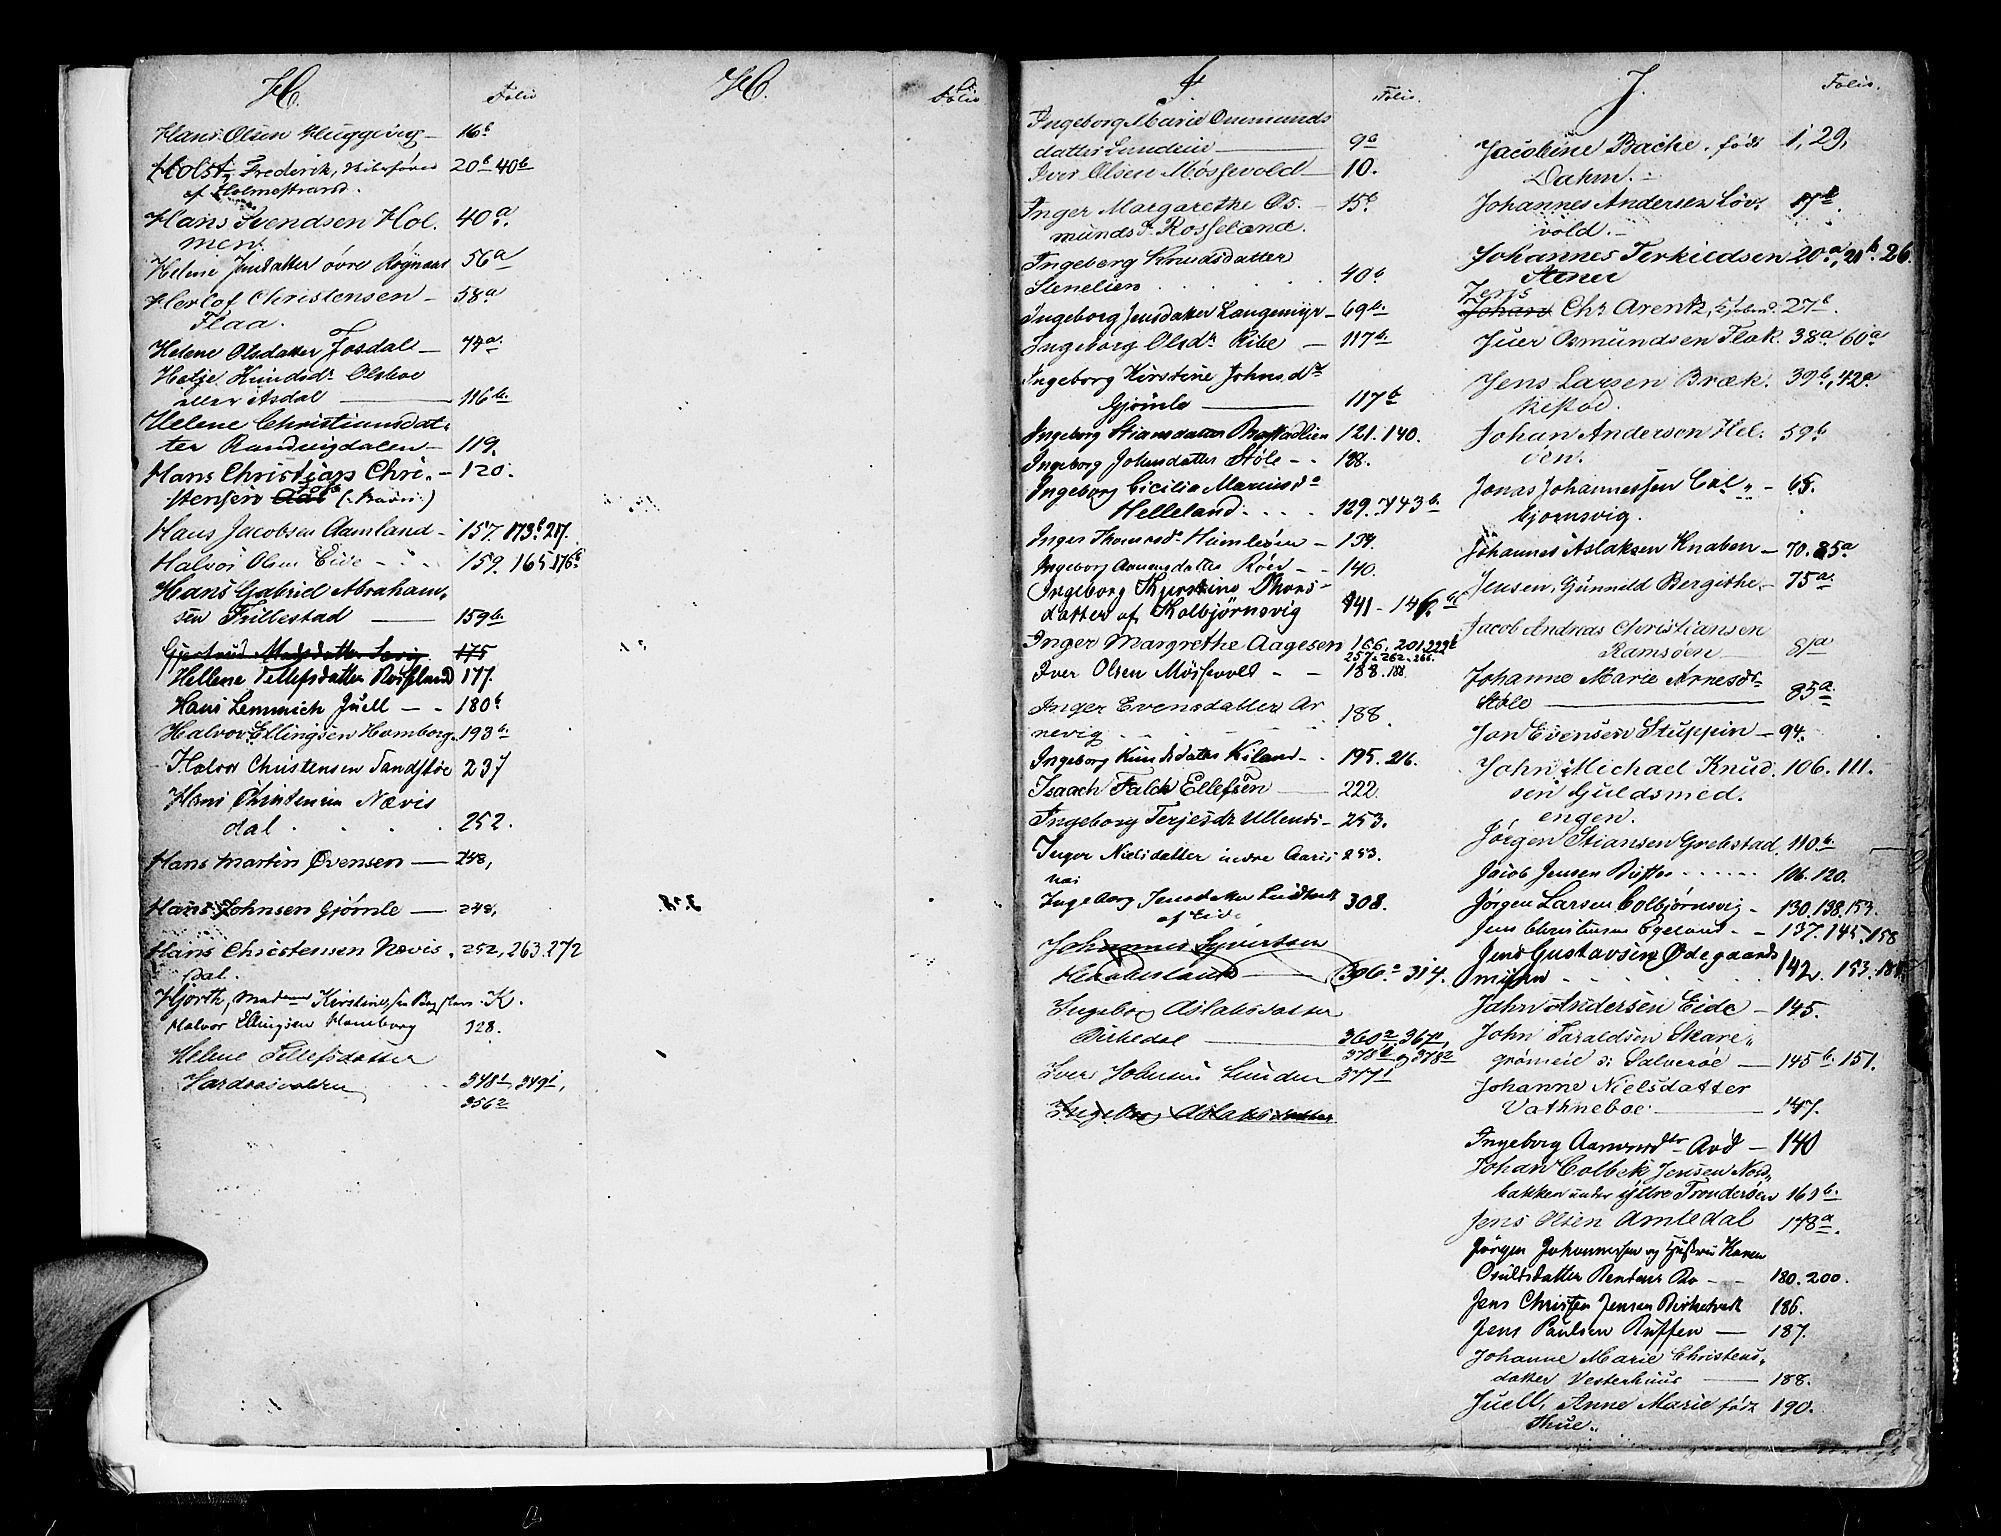 H. Folio
Hans Olsen 16b
Holst, Frederik, af Holmestrand. 20b 40b
Hans Svendsen Hol. 40a
men.
Helene Jensdatter övre Rögnaas 56a
Herlof Christensen 58a
Flaa.
Helene Olsdatter Josdal 77a
Helje Knudsdr Olsboe
eller Asdal 116b.
Helene Christiansdat-
ter Randvigdalen 119.
Hans Christian Chri- 120.
stensen
Hans Jacobsen Aamland 157. 173b 217.
Halvor Olsen Eide 159. 165. 176b
Hans Gabriel Abraham,
sen Fillestad 159b.
Gjertrud Madsdatter 175
Hellene Tellefsdatter Rosseland 177.
Hans Lemmich Juell 180b
Halvor Ellingsen Homborg. 193b.
Halvor Christensen Sandstøe 237
Hans Christensen Nævis
dal 252.
Hans Martin Øvensen 248,
Hans Johnsen Gjömle 248,
Hans Christensen Nævis. 252, 263. 272
dal.
Hjorth, Madame Kirstine, K.
Halvor Ellingsen Homborg 328.
Helene Tellefsdatter
348, 349,
356
H. Folio
J. Folio.
Ingeborg Marie Omunds
datter 9a
Iver Olsen Mössevold 10.
Inger Margarethe Os- 15b
munds d. Rosseland.
Ingeborg Knudsdatter
Stenelien 40b
Ingeborg Jensdatter Langemyr 69b.
Ingeborg Olsdr Ribe 117b.
Ingeborg Kirstine Johnsdr
Gjömle 117b
Ingeborg Stiansdatter 121. 140.
Ingeborg Johnsdatter Støle 128.
Ingeborg Cicilia Mariusda
Helleland 129. 143b.
Inger Thomasdr 139.
Ingeborg Aanensdatter Röed 140.
Ingeborg Kjerstine Thors-
datter af Kolbjörnsvig 141 - 146.
Inger Margrethe Aagesen 166. 201. 222b
257. 262. 266.
Iver Olsen Mössevold 188. 188.
Inger Evensdatter Ar
nevig 188.
Ingeborg Knudsdatter Kiland 195. 216.
Isaach Falck Ellefsen 222.
Ingeborg Terjesdr Ullends 253.
Inger Nielsdatter indre Aaris 253.
Ingeborg Jensdatter
af Eide 308.
Johannes Syvertsen
Haaberland 306. 314.
Ingeborg Aslaksdatter
Birkedal 360, 367,
378 378
Iver Johnsen Lunden 377
Ingeborg Aslaksdatter
J. Folio.
Jacobine Bache. født 1, 29,
Dahm.
Johannes Andersen Löv- 17b.
vold.
Johannes Terkildsen 20a, 21b. 26.
Stener
Jens
Johan Chr Arentz, 27b.
Iver Osmundsen Flak. 38a 60a
Jens Larsen Bræk. 39b, 42a
kestøe.
Johan Andersen Hel. 59b
öen.
Jonas Johannessen Col„ 65.
bjørnsvig.
Johannes Aslaksen Knaben 70. 85a
Jensen, Gunnild Bergithe 75a.
Jacob Andreas Christiansen
Ramsöen 81a
Johanne Marie Arnesdr
Støle 85a.
Jon Evensen Stuppin 94.
John Michael Knud. 106. 111.
sen Guldsmed.
engen.
Jörgen Stiansen Grebstad. 110b.
Jacob Jensen 106. 120.
Jörgen Larsen Colbjörnsvig 130. 138. 153.
Jens Christensen Egeland 137. 145. 158
Jens Gustavsen Ødegaards
142. 153. 185
John Andersen Eide 145.
John Taraldsen Skare„
grømeie Salveröe 145b. 151.
Johanne Nielsdatter
Vathneboe 147.
Ingeborg Aanensdtr 140
Johan Colbek, Jensen Nord„
bakken under yttre Tromdersöen 161b.
Jens Olsen Amledal 178a.
Jörgen Johannessen og Hustrue Karen
Osuldsdatter 180. 200.
Jens Christen Jensen Birketvedt 186.
Jens Paulsen 187.
Johanne Marie Christens„
datter Vesterhuus 188.
Juell, Anne Marie født 190.
Thue.